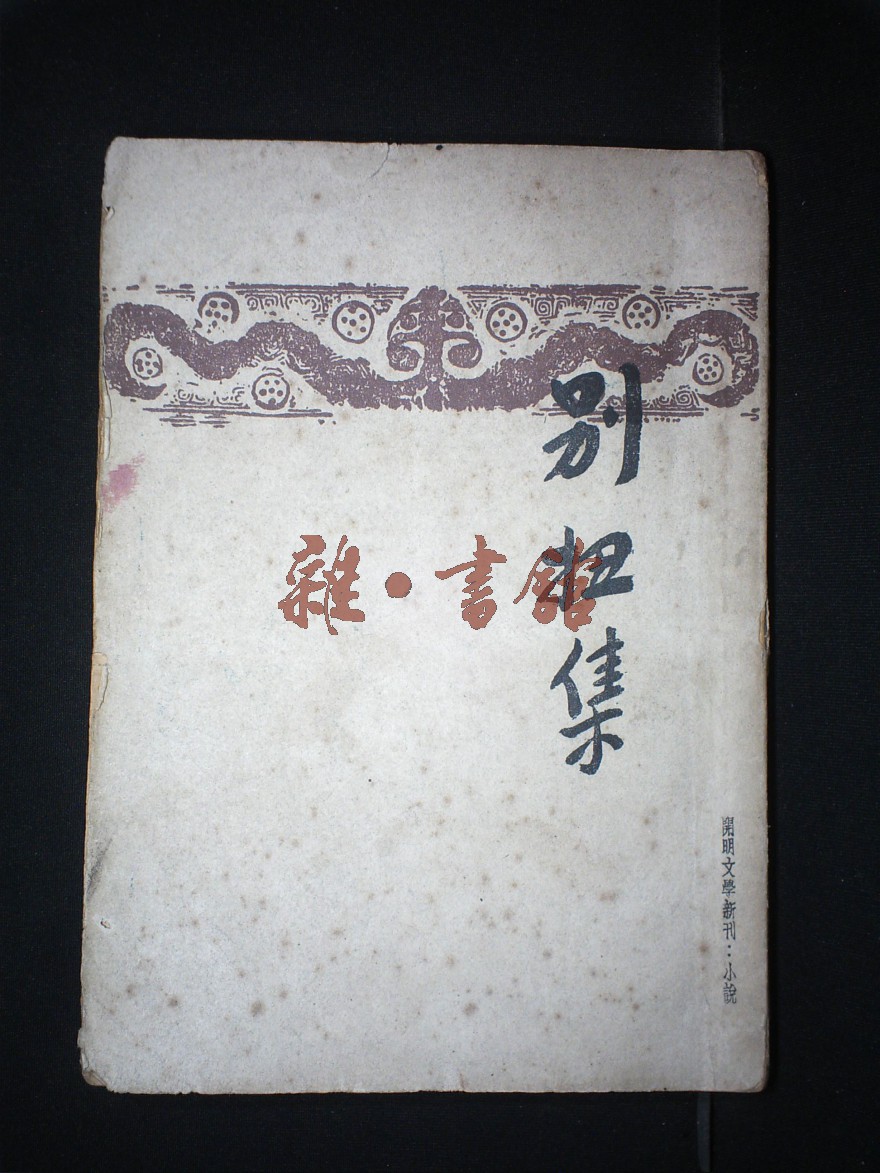 别扭集
雜·書館
開明文學新刊：小說